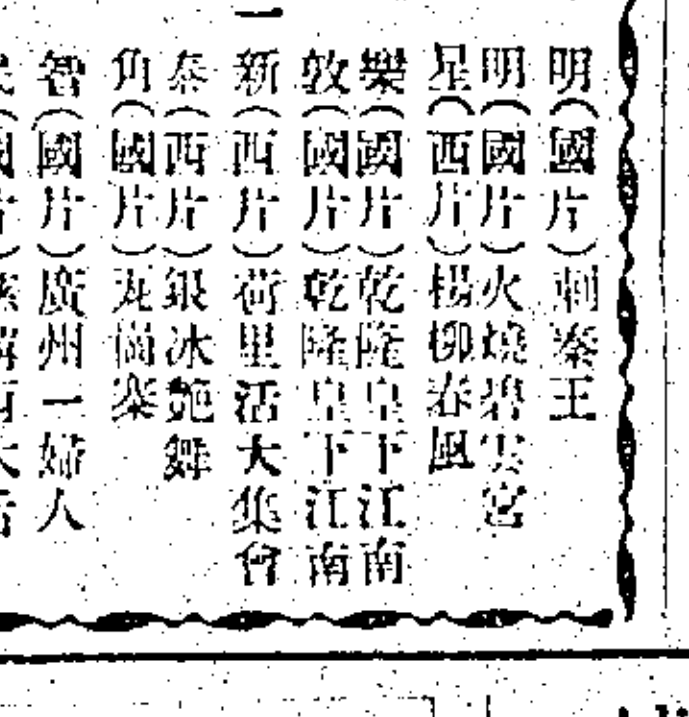 明（國片）刺秦王
明（國片）火燒碧雲宮
星（西片）楊柳春風
樂（國片）乾隆皇下江南
敦（國片）乾隆皇下江南
新（西片）荷里活大集會
泰（西片）銀冰艷舞
角（國片）
智（國片）廣州一婦人